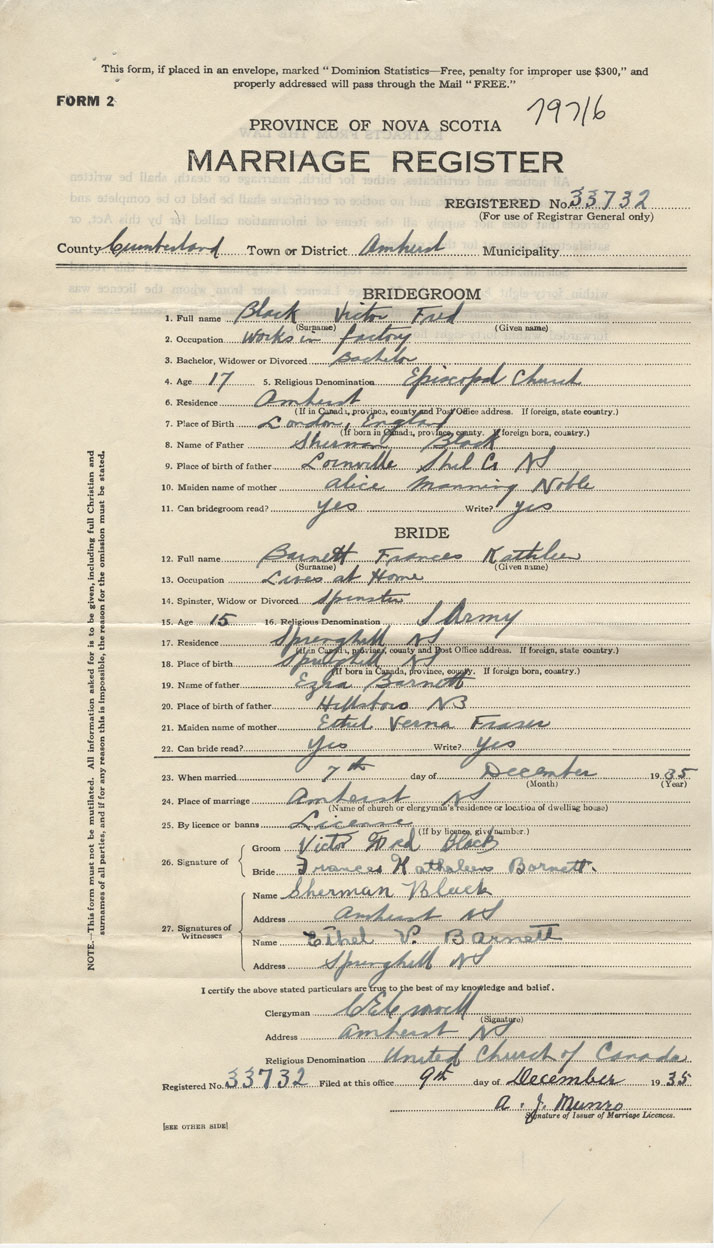 This form, if placed in an envelope, marked "Dominion Statistics—Free, penalty for improper use $300," and
properly addressed will pass through the Mail "FREE."
FORM 2
79716
PROVINCE OF NOVA SCOTIA
MARRIAGE REGISTER
REGISTERED No. 33732
(For use of Registrar General only)
County Cumberland Town or District Amherst Municipality
BRIDEGROOM
1. Full name Black Victor Fred
(Surname) (Given name)
2. Occupation Works in factory
3. Bachelor, Widower or Divorced Bachelor
4. Age 17 5. Religious Denomination Episcopal Church
6. Residence Amherst
(If in Canada, province, county and Post Office address. If foreign, state country.)
7. Place of Birth London, England
(If born in Canada, province, county. If foreign born, country.)
8. Name of Father Sherman Black
9. Place of birth of father NS
10. Maiden name of mother Alice Manning Noble
11. Can bridegroom read? Yes Write? Yes
BRIDE
12. Full name Barnett Frances Kathleen
(Surname) (Given name)
13. Occupation Lives at Home
14. Spinster, Widow or Divorced Spinster
15. Age 15 16. Religious Denomination S Army
17. Residence Springhill NS
(If in Canada, province, county and Post Office address. If foreign, state country.)
18. Place of birth Springhill NS
(If born in Canada, province, county. If foreign born, country.)
19. Name of father Ezra Barnett
20. Place of birth of father Hillsboro NB
21. Maiden name of mother Ethel Verna Fraser
22. Can bride read? Yes Write? Yes
23. When married 7th day of December 1935
(Month) (Year)
24. Place of marriage Amherst NS
(Name of church or clergyman's residence or location of dwelling house)
25. By licence or banns License
(If by licence, give number.)
26. Signature of
Groom Victor Fred Black
Bride Frances Kathaleen Barnett.
27. Signatures of Witnesses
Name Sherman Black
Address Amherst NS
Name Ethel V. Barnett
Address Springhill NS
I certify the above stated particulars are true to the best of my knowledge and belief.
Clergyman
(Signature)
Address Amherst NS
Religious Denomination United Church of Canada
Registered No. 33732 Filed at this office 9th day of December 1935
A. J. Munro
Signature of Issuer of Marriage Licences.
[SEE OTHER SIDE]
NOTE.—This form must not be mutilated. All information asked for is to be given, including full Christian and
surnames of all parties, and if for any reason this is impossible, the reason for the omission must be stated.